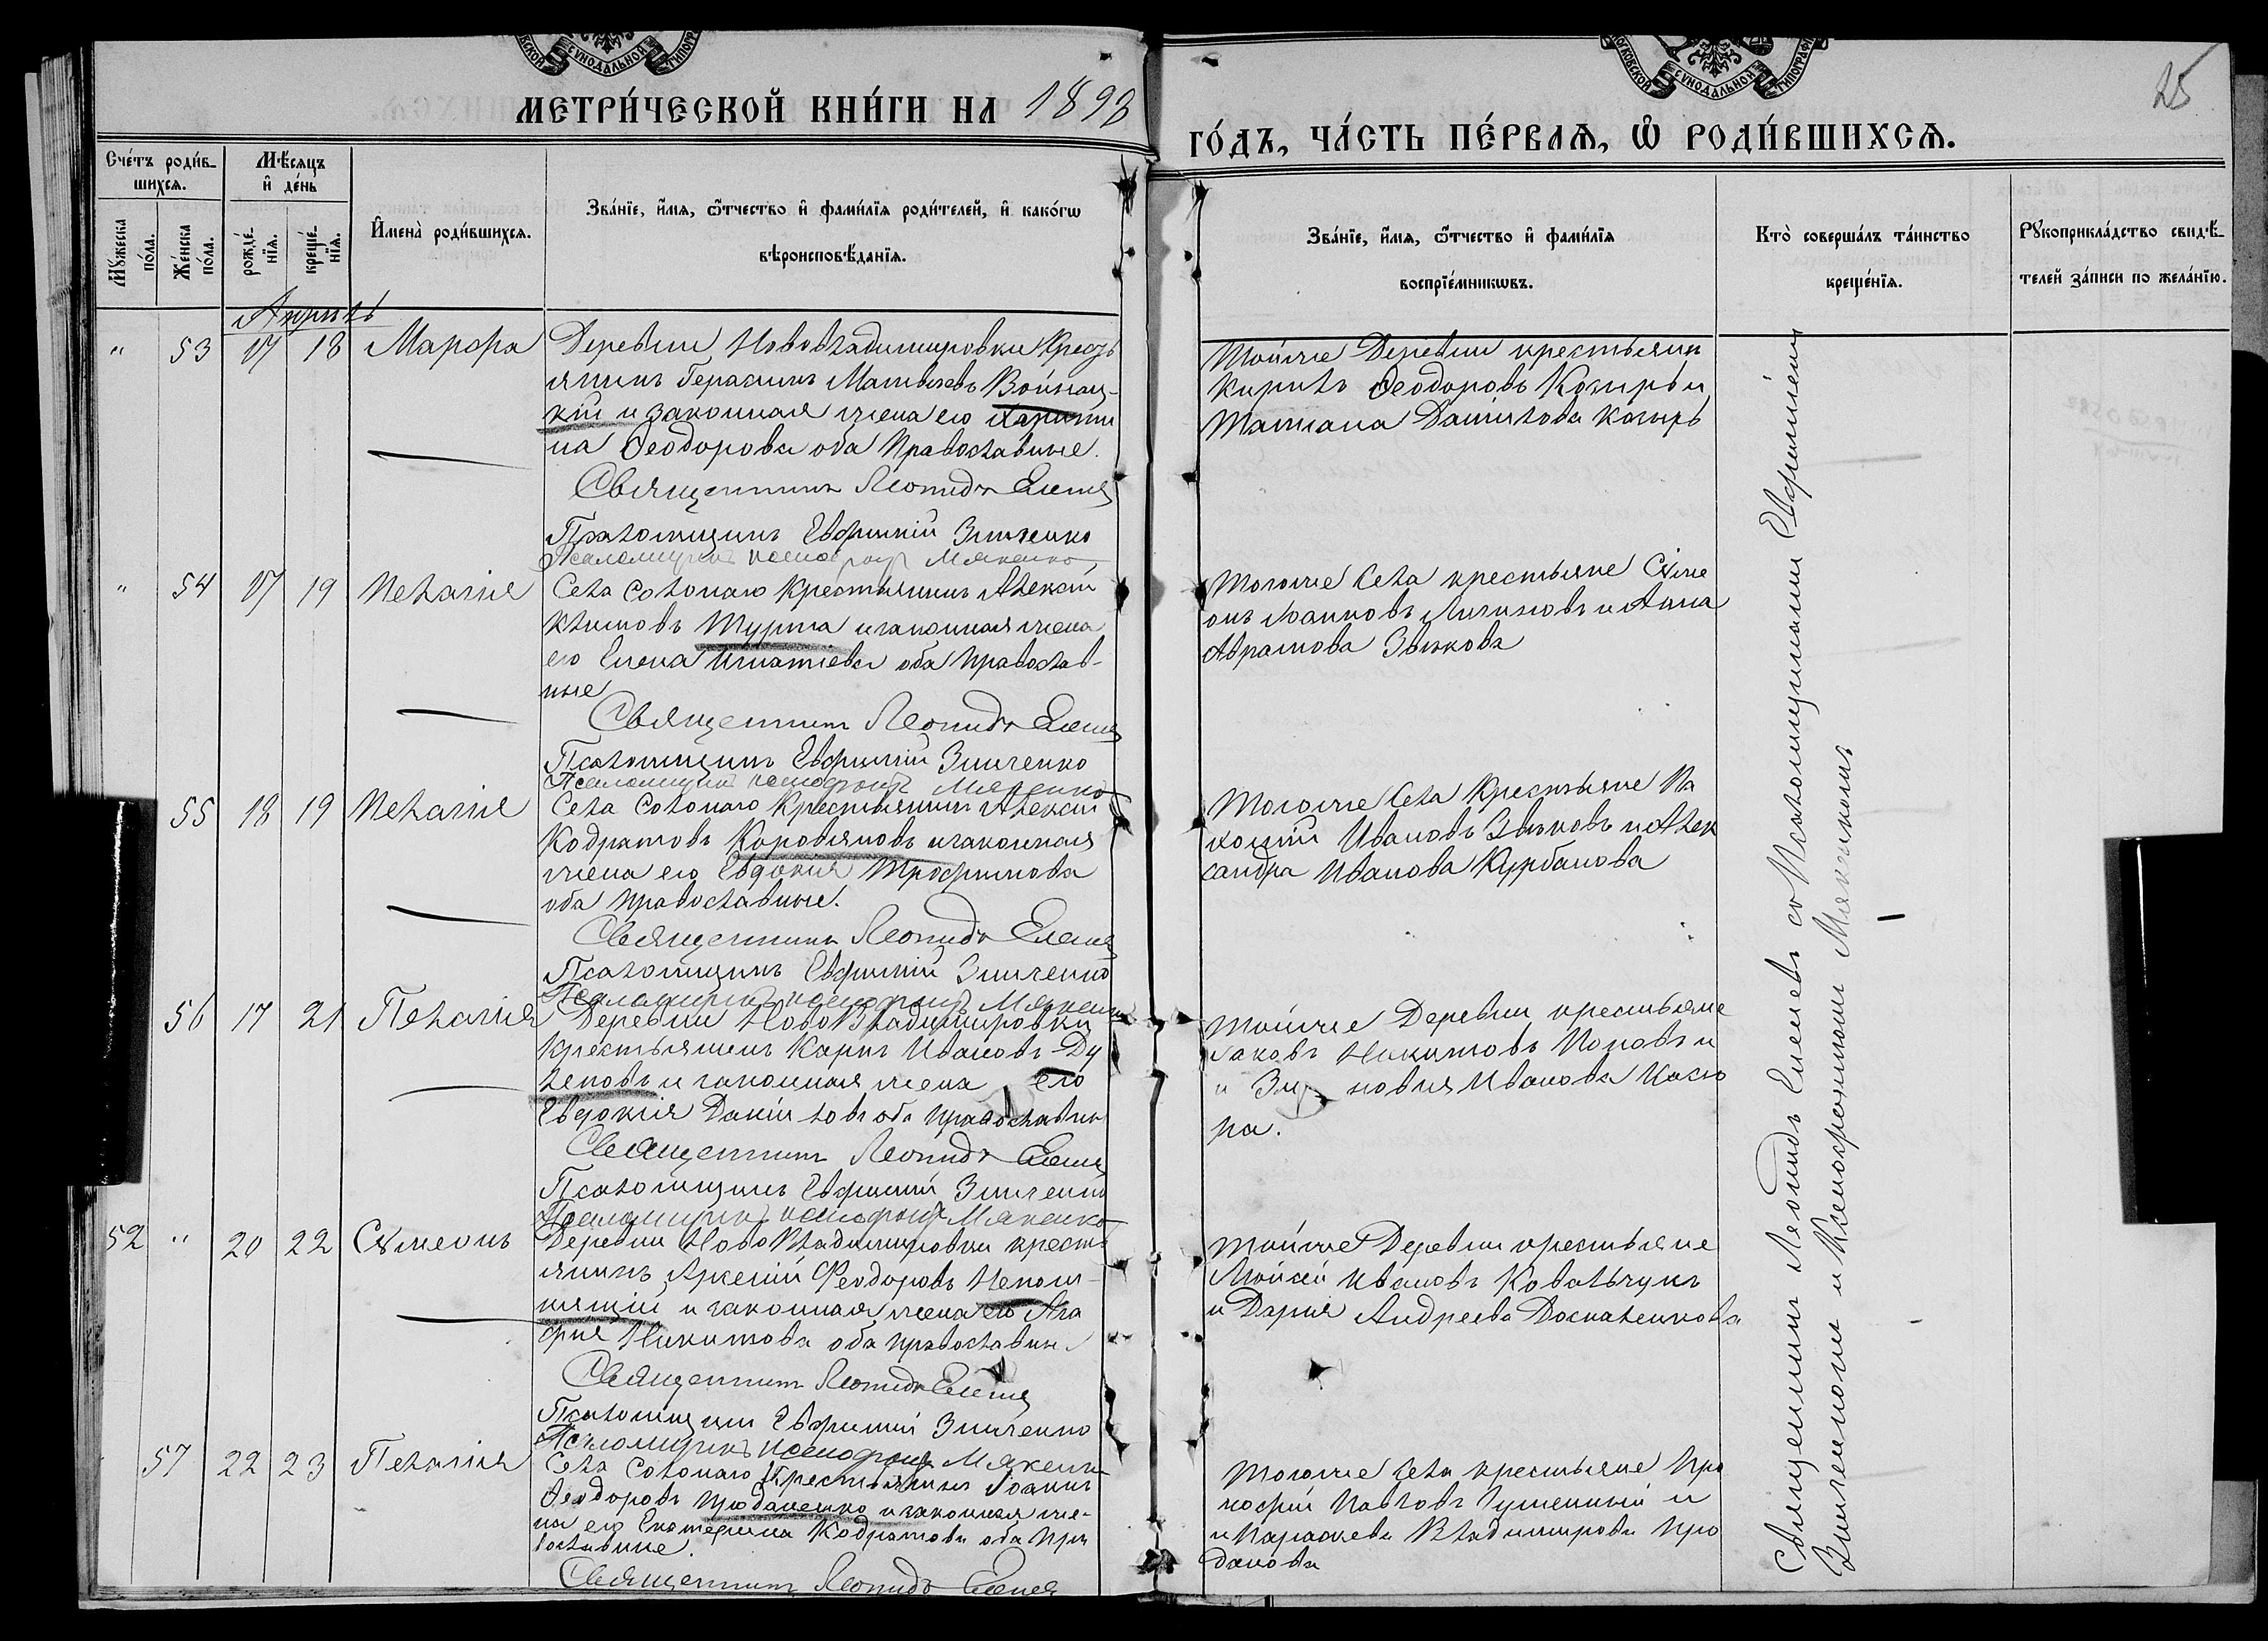 МЕТРИ́ЧЕСКОЙ КНИ́ГИ НА 1893
ГО́ДЪ, ЧА́СТЬ ПЕ́РВАѦ, Ѡ҆ РОДИ́ВШИХСѦ.
25
Сче́тъ роди́в-
шихсѧ.
Мꙋ́жеска по́ла.
Же́нска по́ла.
Мѣ́сѧцъ
и҆ де́нь
рожде́нїѧ.
креще́нїѧ.
И҆мена̀ роди́вшихсѧ.
Зва́нїе, и҆́мѧ, ѻ҆́тчество и҆ фами́лїѧ роди́телей, и҆ како́гѡ
вѣроисповѣ́данїѧ.
Зва́нїе, и҆́мѧ, ѻ҆́тчество и҆ фами́лїѧ
воспрїе́мникѡвъ.
Кто̀ соверша́лъ та́инство
креще́нїѧ.
Рꙋкоприкла́дство свидѣ́-
телей за́писи по жела́нїю.
Апрѣль
" 53 17 18 Марфа
Деревни Нововладимировки Кресть
янинъ Герасимъ Матвѣевъ Войнац-
кій и законная жена его Харити
на Ѳеодорова оба Православные.
Священникъ Леонидъ Енеевъ
Псаломщикъ Евфимій Зинченко
Псаломщикъ Ксенофонтъ Мякенко
Тойже Деревни крестьянин
Кирилъ Ѳеодоровъ Козирь и
Татиана Даниилова Козирь
" 54 17 19 Пелагія
Села Солонаго Крестьянинъ Алексѣй
Климовъ Турта и законная жена
его Елена Игнатіева оба православ-
ные
Священникъ Леонидъ Енеевъ
Псаломщикъ Евфимій Зинченко
Псаломщикъ Ксенофонтъ Мякенко
Тогоже Села крестьяне Сѵме
онъ Іоанновъ Логиновъ и Анна
Аврамова Зыкова
55 18 19 Пелагія
Села Солонаго Крестьянинъ Алексѣй
Кодратовъ Коровяковъ и законная
жена его Евдокія Трофимова
оба православные.
Священникъ Леонидъ Енеевъ
Псаломщикъ Евфимій Зинченко
Псаломщикъ Ксенофонтъ Мякенко
Тогоже Села Крестьяне Па
Ивановъ Зыковъ и Алек
сандра Иванова Курбанова
56 17 21 Пелагія
Деревни НовоВладимировки
Крестьянинъ Карпъ Ивановъ Ду
и законная жена его
Евдокія оба православн
Священникъ Леонидъ Енеевъ
Псаломщикъ Евфимій Зинченко
Псаломщикъ Ксенофонтъ Мякенко
Тойже Деревни крестьяне
Іаковъ Никитовъ Поповъ и
и Зиновия Иванова
ра.
52 " 20 22 Сѵмеонъ
Деревни НовоВладимировки кресть
янинъ Арсеній Феодоровъ Непом-
нящій и законная жена его Ага
фия Никитова оба православн.
Священникъ Леонидъ Енеевъ
Псаломщикъ Евфимій Зинченко
Псаломщикъ Ксенофонтъ Мякенко
Тойже Деревни крестьяне
Мойсей Ивановъ Ковальчукъ
и Дария Андреева
57 22 23 Пелагія
Села Солонаго Крестьянинъ Іоаннъ
Ѳеодоровъ и законная же-
на его Екатерина Кодратова оба пра
вославные.
Священникъ Леонидъ Енеевъ
Тогоже Села крестьяне Про
кофій Павловъ и
и Параскева Владимирова Про
данова
Священникъ Леонидъ Енеевъ со Псаломщиками Евфиміемъ
Зинченкомъ и Ксенофонтомъ Мякенкомъ